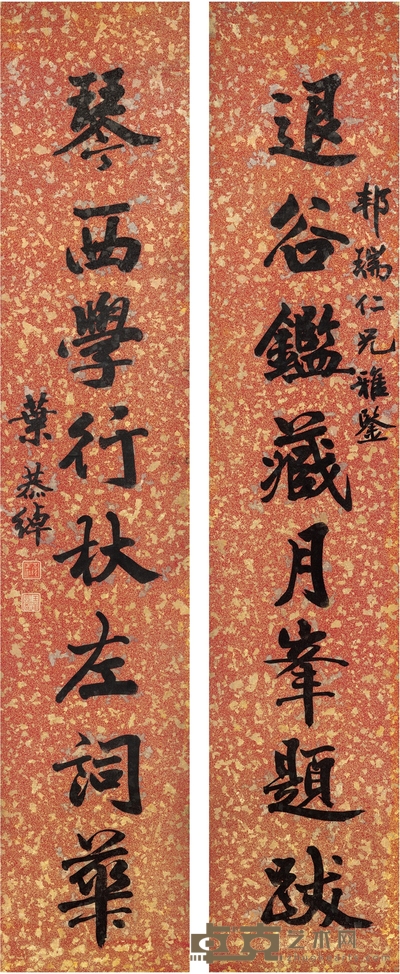 邦瑞仁兄雅鉴
退谷鑑藏月峯題跋
琴西學行秋左詞華
葉恭綽
艺术网